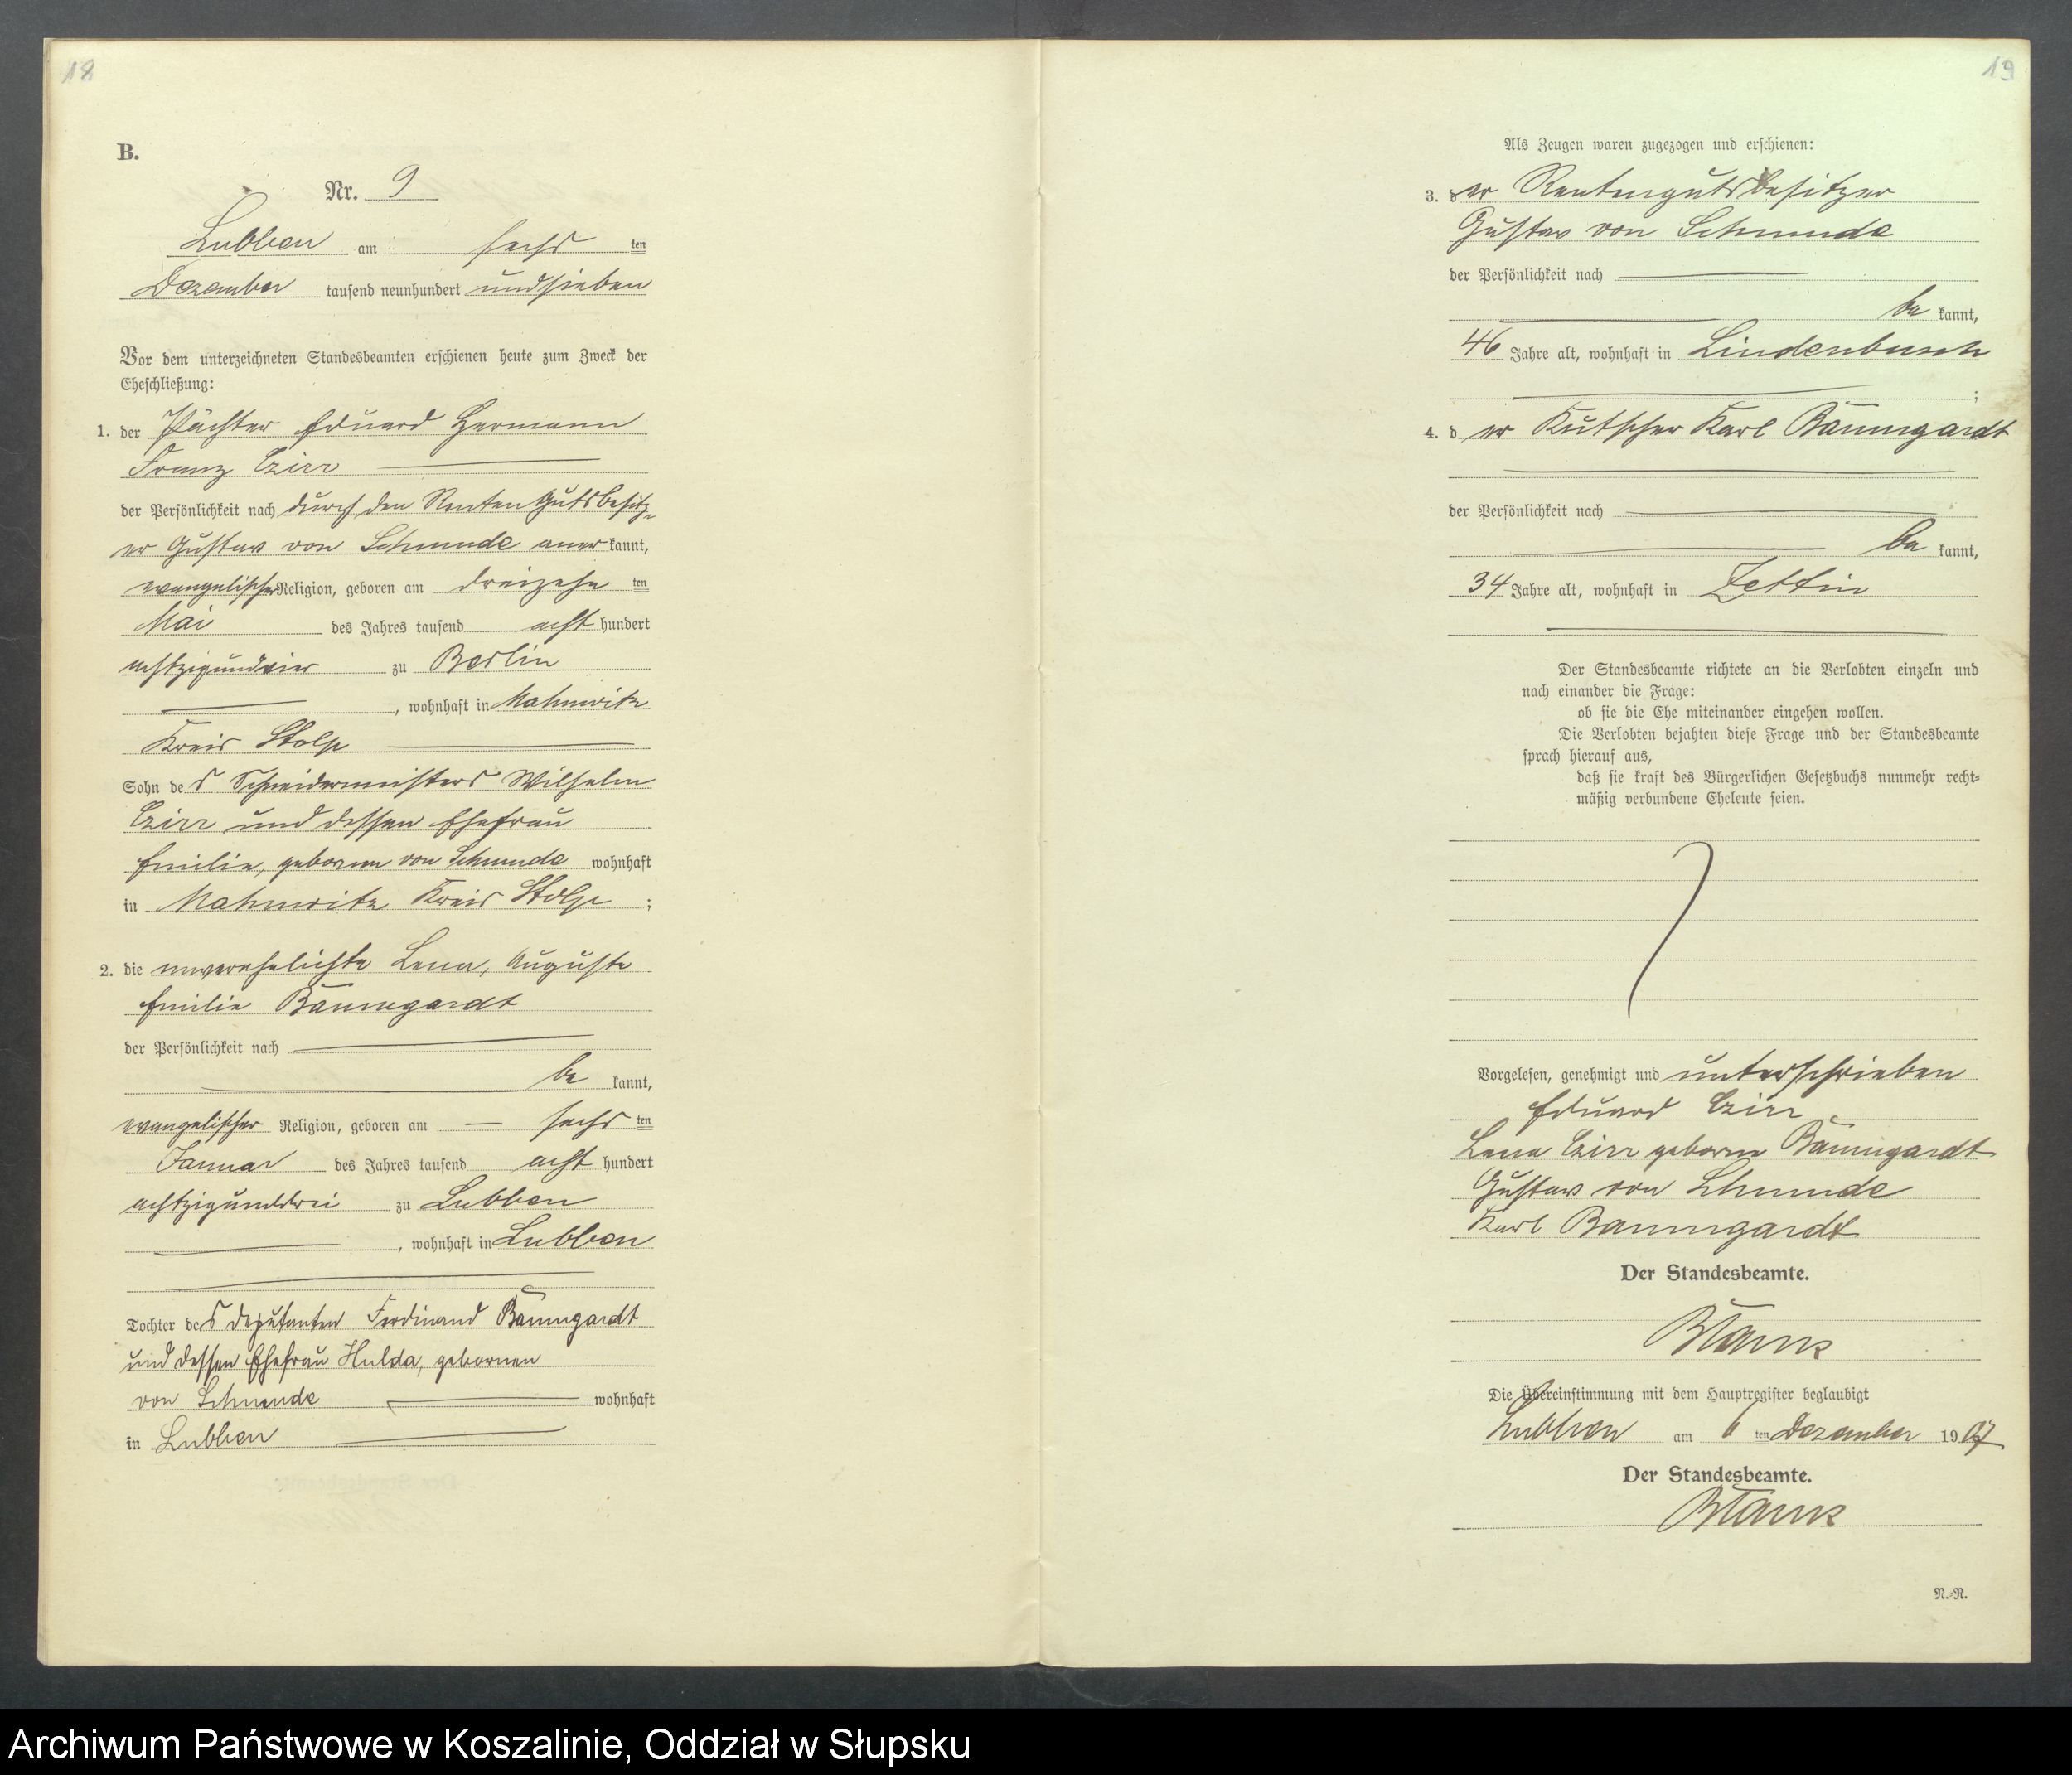 18
B.
Nr. 9
Lubben am sechs ten
Dezember tausend neunhundert und sieben
Vor dem unterzeichneten Standesbeamten erschienen heute zum Zweck der
Eheschließung:
1. der Pächter Eduard Hermann
Franz Czirr
der Persönlichkeit nach durch den Renten Gutsbesitz-
er Gustav von Schmude aner kannt,
evangelischer Religion, geboren am dreizehn ten
Mai des Jahres tausend acht hundert
achtzigundvier zu Berlin
, wohnhaft in Mahnwitz
Kreis Stolp
Sohn des Schneidermeisters Wilhelm
Czirr und dessen Ehefrau
Emilie, geborne von Schmude wohnhaft
in Mahnwitz Kreis Stolp ;
2. die unverehelichte Lena, Auguste
Emilie Baumgardt
der Persönlichkeit nach
be kannt,
evangelischer Religion, geboren am sechs ten
Januar des Jahres tausend acht hundert
achtzigunddrei zu Lubben
, wohnhaft in Lubben
Tochter des Deputanten Ferdinand Baumgardt
und dessen Ehefrau Hulda, gebornen
von Schmude wohnhaft
in Lubben
19
Als Zeugen waren zugezogen und erschienen:
3. der Rentengutsbesitzer
Gustav von Schmude
der Persönlichkeit nach
be kannt,
46 Jahre alt, wohnhaft in Lindenbusch
;
4. der Kutscher Karl Baumgardt
der Persönlichkeit nach
be kannt,
34 Jahre alt, wohnhaft in Zettin
Der Standesbeamte richtete an die Verlobten einzeln und
nach einander die Frage:
ob sie die Ehe miteinander eingehen wollen.
Die Verlobten bejahten diese Frage und der Standesbeamte
sprach hierauf aus,
daß sie kraft des Bürgerlichen Gesetzbuchs nunmehr recht-
mäßig verbundene Eheleute seien.
Vorgelesen, genehmigt und unterschrieben
Eduard Czirr
Lena Czirr geborne Baumgardt
Gustav von Schmude
Karl Baumgardt
Der Standesbeamte.
Die Übereinstimmung mit dem Hauptregister beglaubigt
Lubben am 6 ten Dezember 1907
Der Standesbeamte.
N.-R.
Archiwum Państwowe w Koszalinie, Oddział w Słupsku